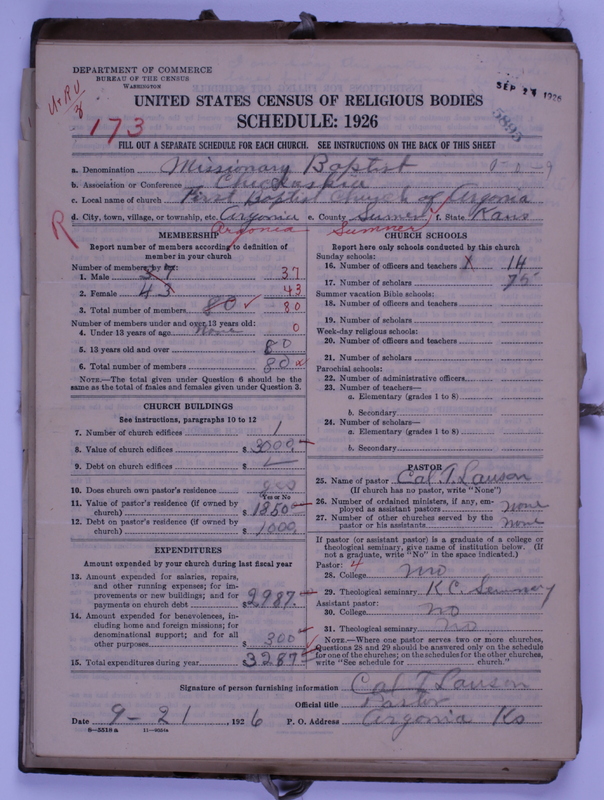 DEPARTMENT OF COMMERCE
BUREAU OF THE CENSUS
WASHINGTON
SEP 24 1926
5895
UNITED STATES CENSUS OF RELIGIOUS BODIES
173
SCHEDULE: 1926
FILL OUT A SEPARATE SCHEDULE FOR EACH CHURCH. SEE INSTRUCTIONS ON THE BACK OF THIS SHEET
a. Denomination Missionary Baptist
b. Association or Conference Chickaskia
c. Local name of church First Baptist Church of Argonia
d. City, town, village, or township, etc. Argonia e. County Sumner f. State Kans
R Argonia Sumner
MEMBERSHIP
Report number of members according to definition of
member in your church
Number of members by
1. Male 37 37
2. Female 43 43
3. Total number of members 80 80
Number of members under and over 13 years old:
4. Under 13 years of age None 0
5. 13 years old and over 80
6. Total number of members 80
NOTE.—The total given under Question 6 should be the
same as the total of males and females given under Question 3.
CHURCH BUILDINGS
See instructions, paragraphs 10 to 12
7. Number of church edifices 1
8. Value of church edifices $ 3000
9. Debt on church edifices $
10. Does church own pastor's residence
Yes or No
11. Value of pastor's residence (if owned by
church) $ 1250
12. Debt on pastor's residence (if owned by
church) $ 1000
EXPENDITURES
Amount expended by your church during last fiscal year
13. Amount expended for salaries, repairs,
and other running expenses; for im-
provements or new buildings; and for
payments on church debt $ 2987
14. Amount expended for benevolences, in-
cluding home and foreign missions; for
denominational support; and for all
other purposes $ 300
15. Total expenditures during year $ 3287
CHURCH SCHOOLS
Report here only schools conducted by this church
Sunday schools:
16. Number of officers and teachers X 14
17. Number of scholars 75
Summer vacation Bible schools:
18. Number of officers and teachers
19. Number of scholars
Week-day religious schools:
20. Number of officers and teachers
21. Number of scholars
Parochial schools:
22. Number of administrative officers
23. Number of teachers—
a. Elementary (grades 1 to 8)
b. Secondary
24. Number of scholars—
a. Elementary (grades 1 to 8)
b. Secondary
PASTOR
25. Name of pastor Cal. T. Lauson
(If church has no pastor, write "None")
26. Number of ordained ministers, if any, em-
ployed as assistant pastors none
27. Number of other churches served by the
pastor or his assistants none
If pastor (or assistant pastor) is a graduate of a college or
theological seminary, give name of institution below. (If
not a graduate, write "No" in the space indicated.)
Pastor: 4
28. College no
29. Theological seminary K.C. Seminary
Assistant pastor:
30. College no
31. Theological seminary no
NOTE.—Where one pastor serves two or more churches,
Questions 28 and 29 should be answered only on the schedule
for one of the churches; on the schedules for the other churches,
write "See schedule for church."
Signature of person furnishing information Cal T. Lauson
Official title Pastor
Date 9-21, 1926 P. O. Address Argonia Ks
8-5518a 11-9234a